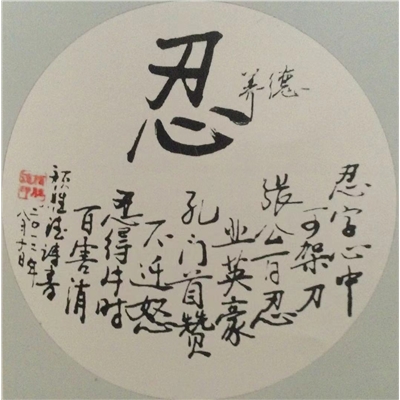 忍
养德
忍字心中
可架刀
张公百忍
业英豪
孔门首赞
不迁怒
忍得片时
百害消
二〇一二年